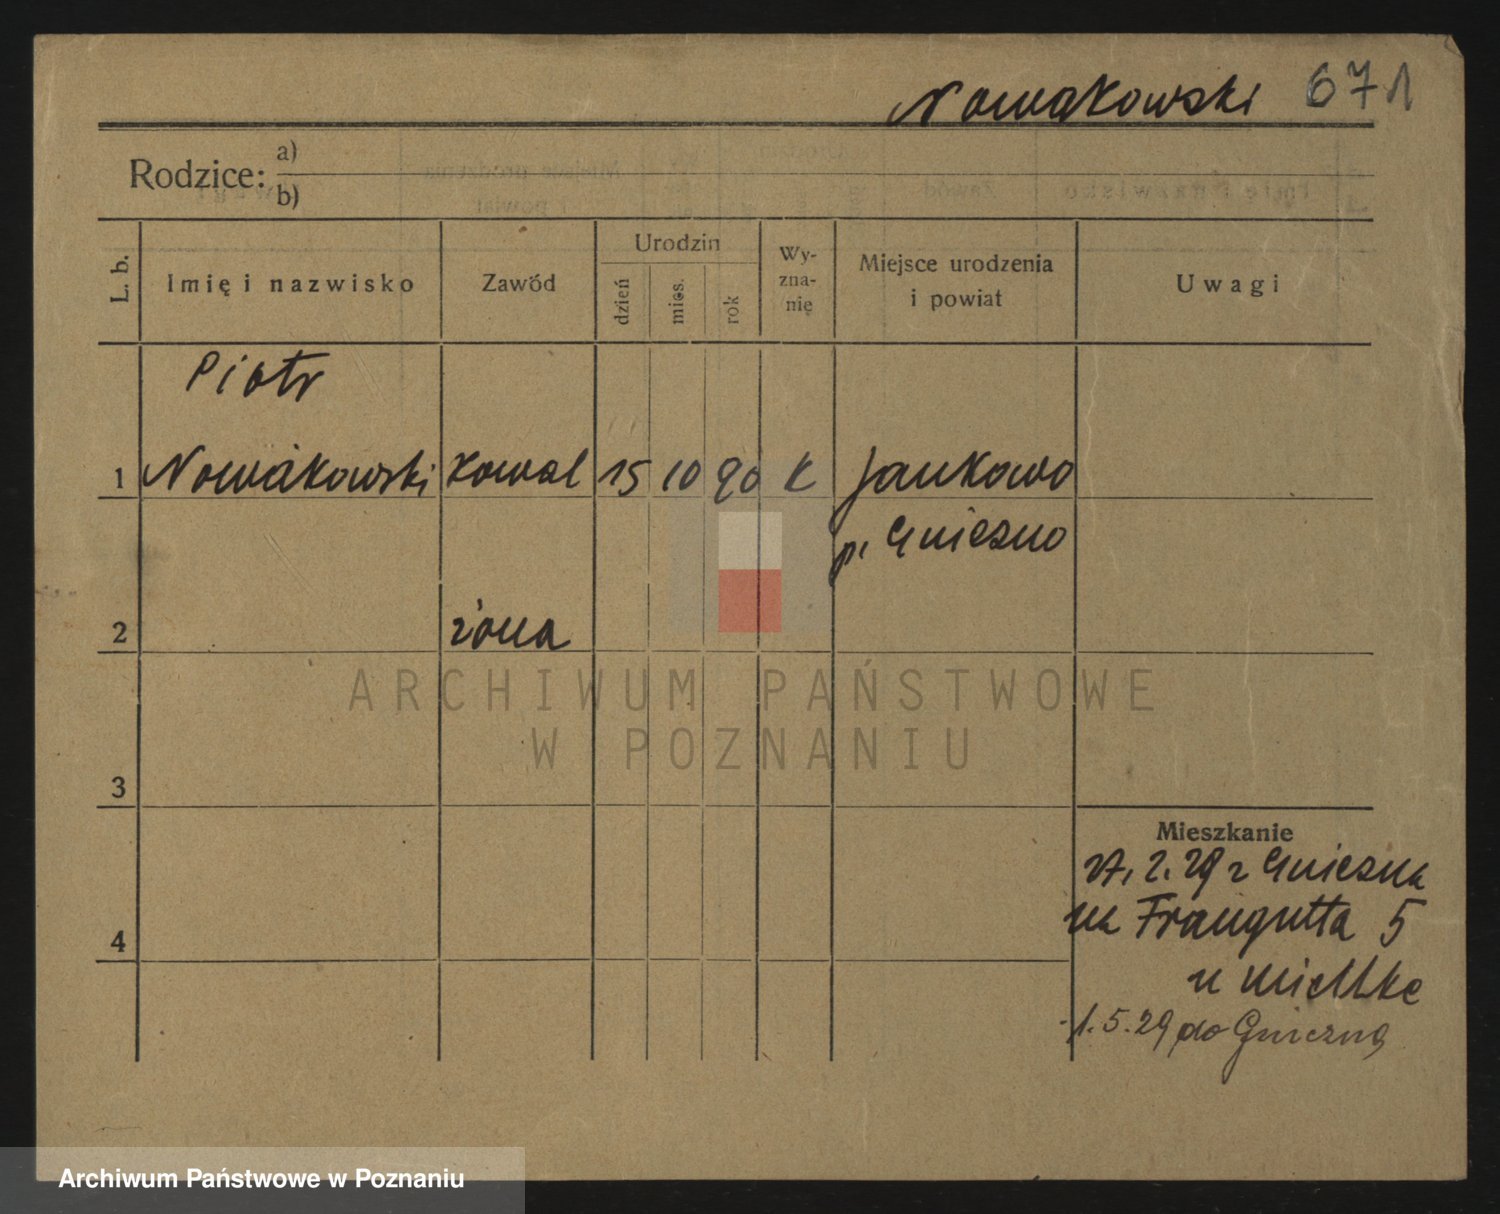 Nowakowski 671
Rodzice: a)
b)
L. b. Imię i nazwisko Zawód Urodzin dzień mies. rok Wy-zna-nię Miejsce urodzenia i powiat Uwagi
Piotr
1 Nowakowski kowal 15 10 90 K Jankowo
p. Gniezno
2 żona
3
4
Mieszkanie
2. 29 z Gniezna
na Traugutta 5
u Mielke
1.5.29 do Gniezna
ARCHIWUM PAŃSTWOWE
W POZNANIU
Archiwum Państwowe w Poznaniu